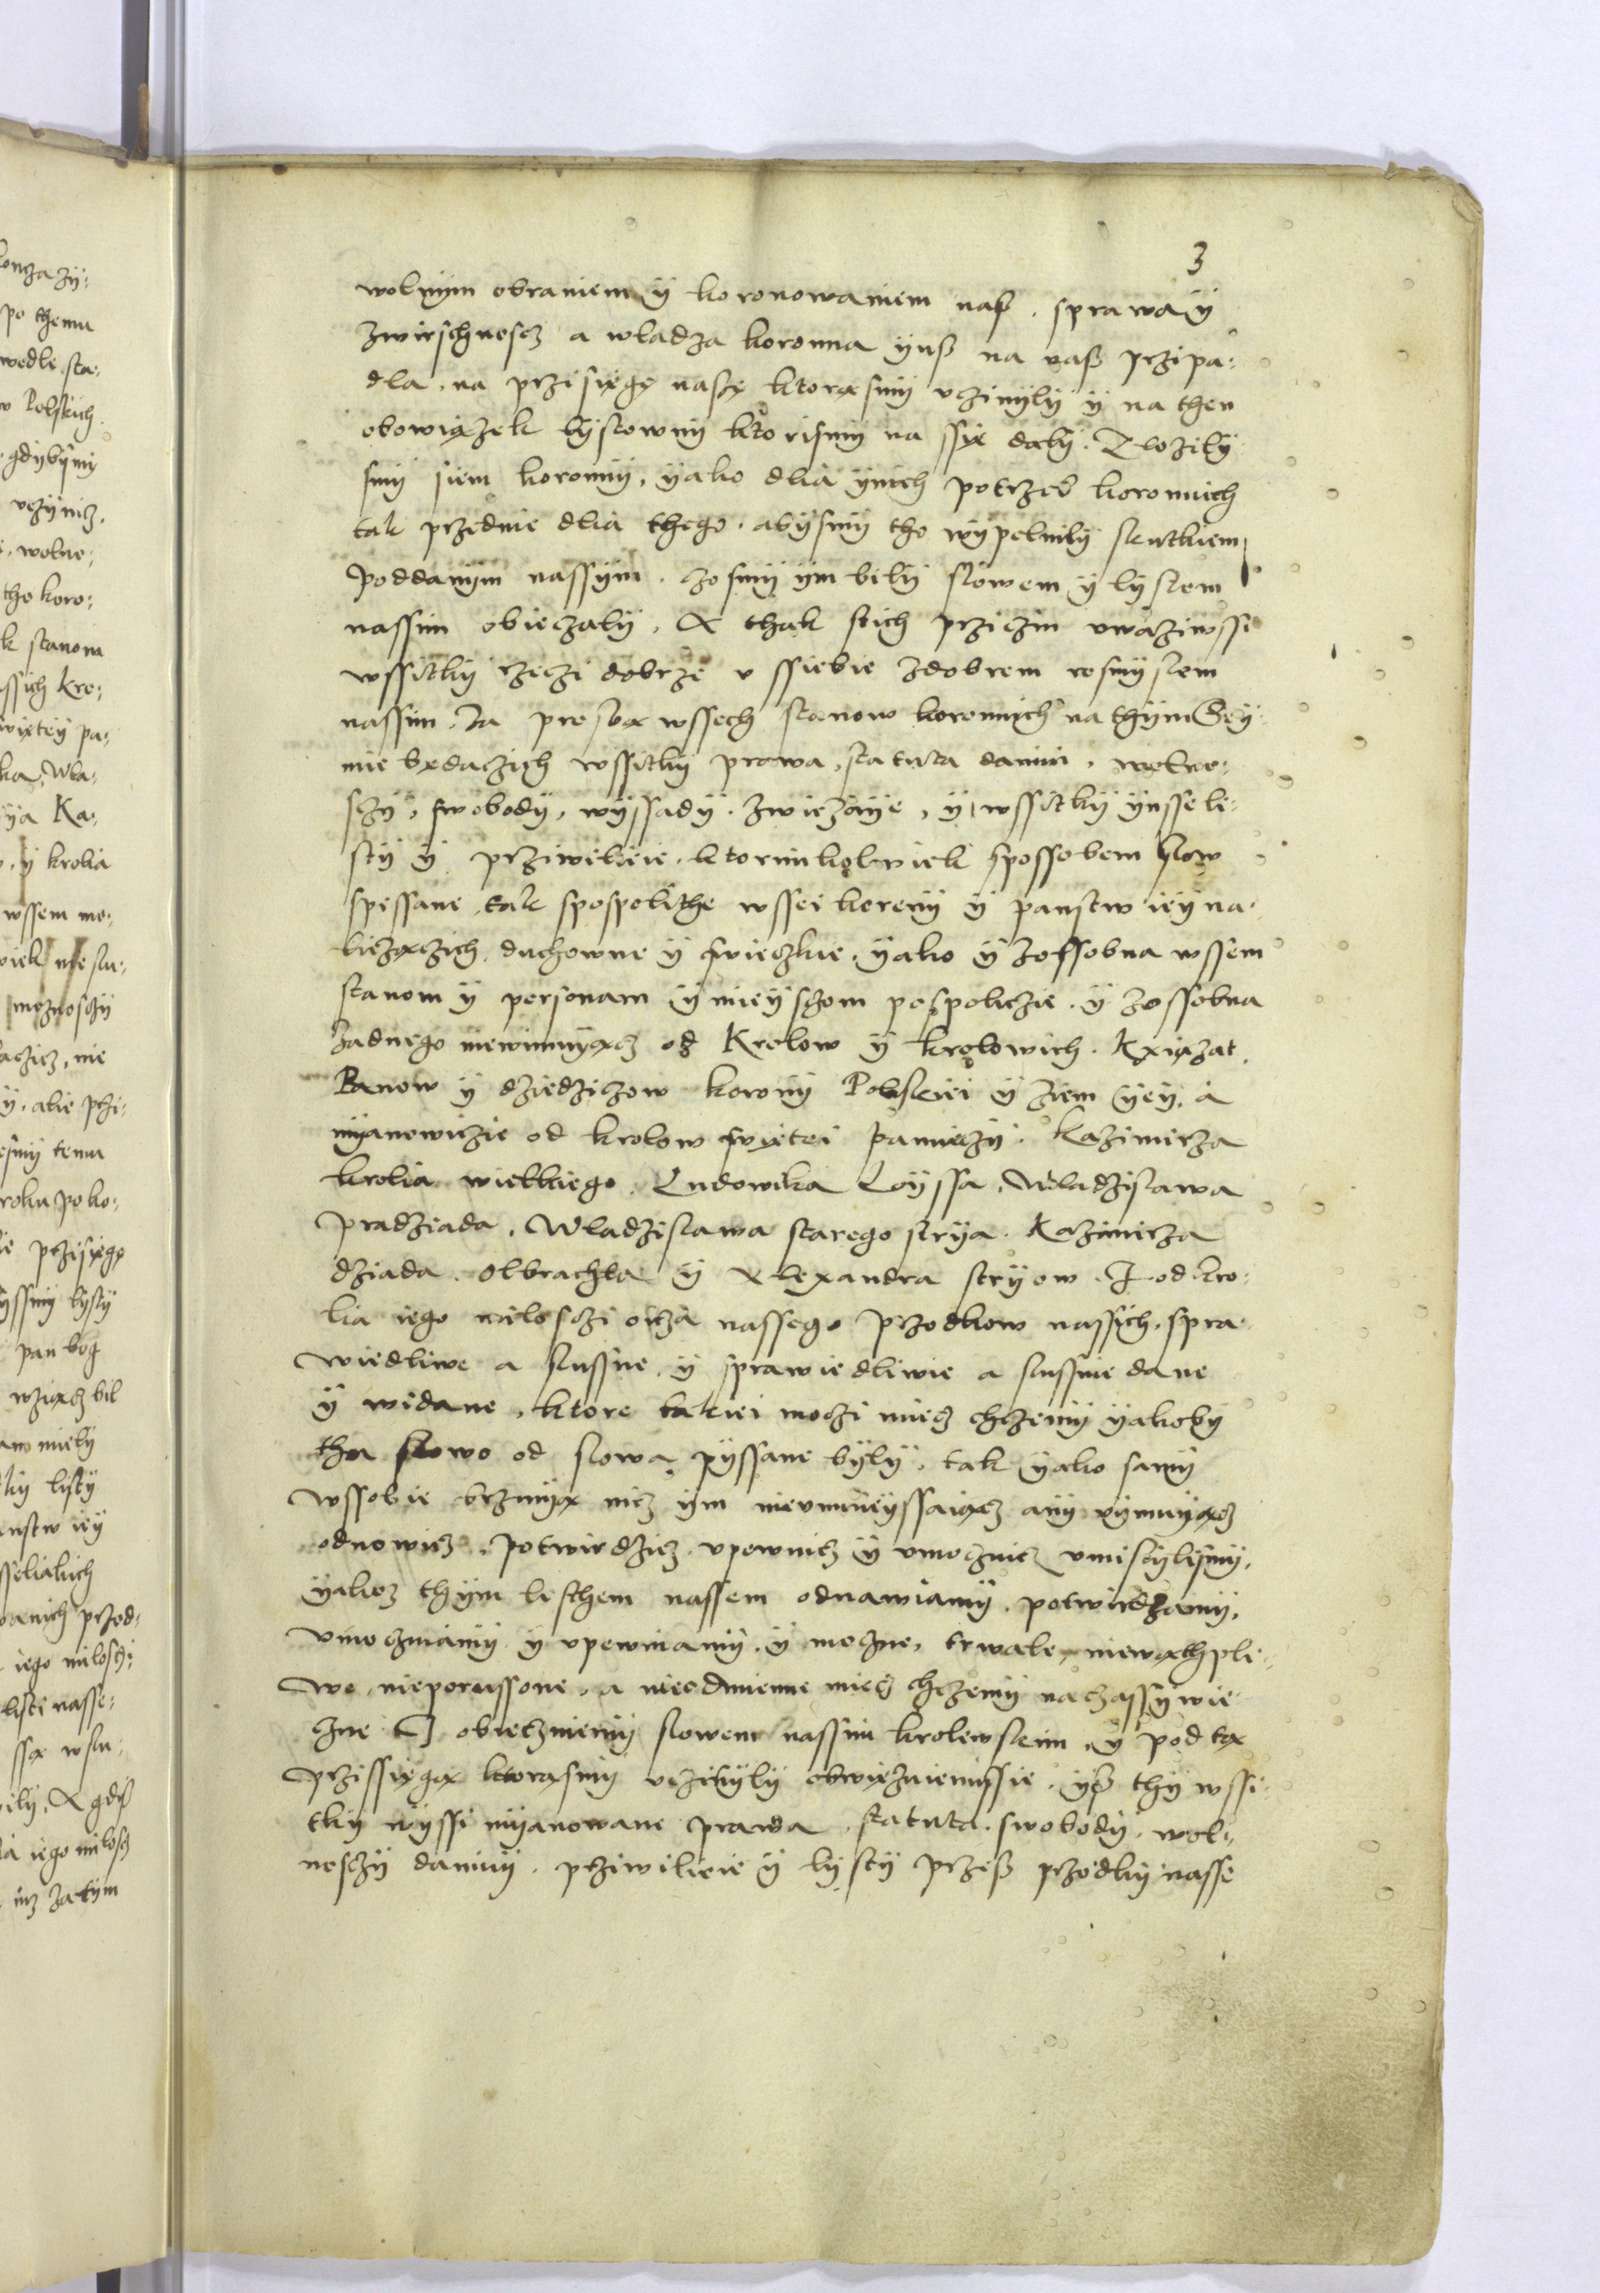 3
wolnym obraniem ÿ koronowaniem nas, sprawa ÿ
zwirschnoscz a wladza koronna ÿuß na naß przipa:
dla, na przisiegę naszę ktorąsmÿ vczinÿlÿ ÿ na then
obowiązek lÿstownÿ ktorismÿ na ssię dalÿ. Zlozilÿ
smÿ siem koronnÿ, ÿako dlia ÿnich potrzeb koronnich
tak przednie dlia thego, abÿsmÿ tho wÿpelnilÿ skutkiem
poddanÿm nassÿm, czosmÿ ÿm bilÿ slowem ÿ lÿstem
nassim obieczalÿ, A thak stich prziczin vwaziwssi
wssitkÿ rzeczi dobrze v ssiebie zdobrem rosmÿslem
nassim, Za prosbą wssech stanow koronnich na thÿm Seÿ:
mie będaczich wssitkÿ prawa, statuta daniny, wolno:
sczÿ, swobodÿ, wÿssadÿ, zwiczaÿe, ÿ wssitkÿ ÿnsse li:
stÿ ÿ priwileie, ktorimkolwiek spossobem slow
spissane, tak spospolithe wssei koronÿ ÿ panstw ieÿ na:
liezączich, duchowne ÿ swieczkie, ÿako ÿ zossobna wssem
stanom ÿ personam ÿ mieÿsczom pospoliczie, ÿ zossobna
zadnego niewinmuÿącz od Krolow ÿ krolowich, Kxiązat,
Panow ÿ dziedziczow koronÿ Polskiei ÿ ziem ÿeÿ, a
mÿanowiczie od krolow swiętei pamieczÿ, Kazimirza
krolia wielkiego, Ludowika Loÿssa, Wladzislawa
pradziada, Wladzislawa starego strÿa, Kazimirza
dziada, Olbrachta ÿ Alexandra strÿow, I od kro:
lia iego miłosczi oicza nassego przodkow nassich, spra:
wiedliwe a slussne, ÿ sprawiedliwie a slussnie dane
ÿ widane, ktore takiei moczi miecz chczemÿ ÿakobÿ
tha slowo od slowa pÿssane bÿlÿ, tak ÿako samÿ
wssobie brzmÿą nicz ÿm nievmnieÿssaiącz anÿ vÿmuÿącz
odnowicz, potwirdzicz, vpewnicz ÿ vmocznicz vmislÿlismÿ,
ÿakoz thÿm listhem nassem odnawiamÿ, potwirdzamÿ,
vmoczniamÿ ÿ vpewniamÿ, ÿ moczne, trwale, niewąthpli:
we, nieporussone, a nieodmienne miecz chczemÿ na czassÿ wie
czne obieczniemÿ slowem nassim krolewskim, ÿ pod tą
przissięgą ktorąsmÿ vczinÿlÿ obwięzniemÿsie, ÿß thÿ wssi:
tkÿ wÿssi mÿanowane prawa, statuta, swobodÿ, wol:
nosczÿ daninÿ, priwileie ÿ lÿstÿ przeß przodkÿ nasse